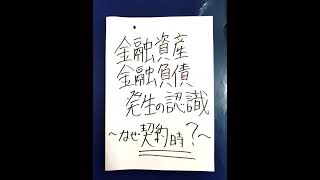 金融資産
金融負債
発生の認識
〜なぜ契約時?〜